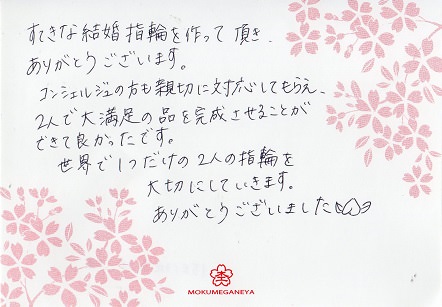 すてきな結婚指輪を作って頂き、
ありがとうございます。
コンシェルジュの方も親切に対応してもらえ、
2人で大満足の品を完成させることが
できて良かったです。
世界で1つだけの2人の指輪を
大切にしていきます。
ありがとうございました
MOKUMEGANEYA